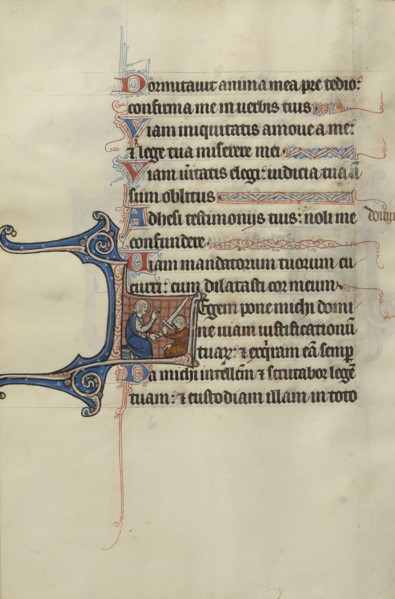 Dormitauit anima mea pre tedio:
confirma me in uerbis tuis
Viam iniquitatis amoue a me:
⁊ lege tua miserere mei
Viam ũitatis elegi: iudicia tua
sum oblitus
Adhesi testimonijs tuis: noli me
confundere
Uiam mandatorum tuorum cu
curri: cum dilatasti cor meum
Legem pone michi domi
ne uiam iustificationũ
tuaꝝ: ⁊ exq̇ram eã semp̱
Da michi intellcm̃ ⁊ scrutabor legẽ
tuam: ⁊ custodiam illam in toto